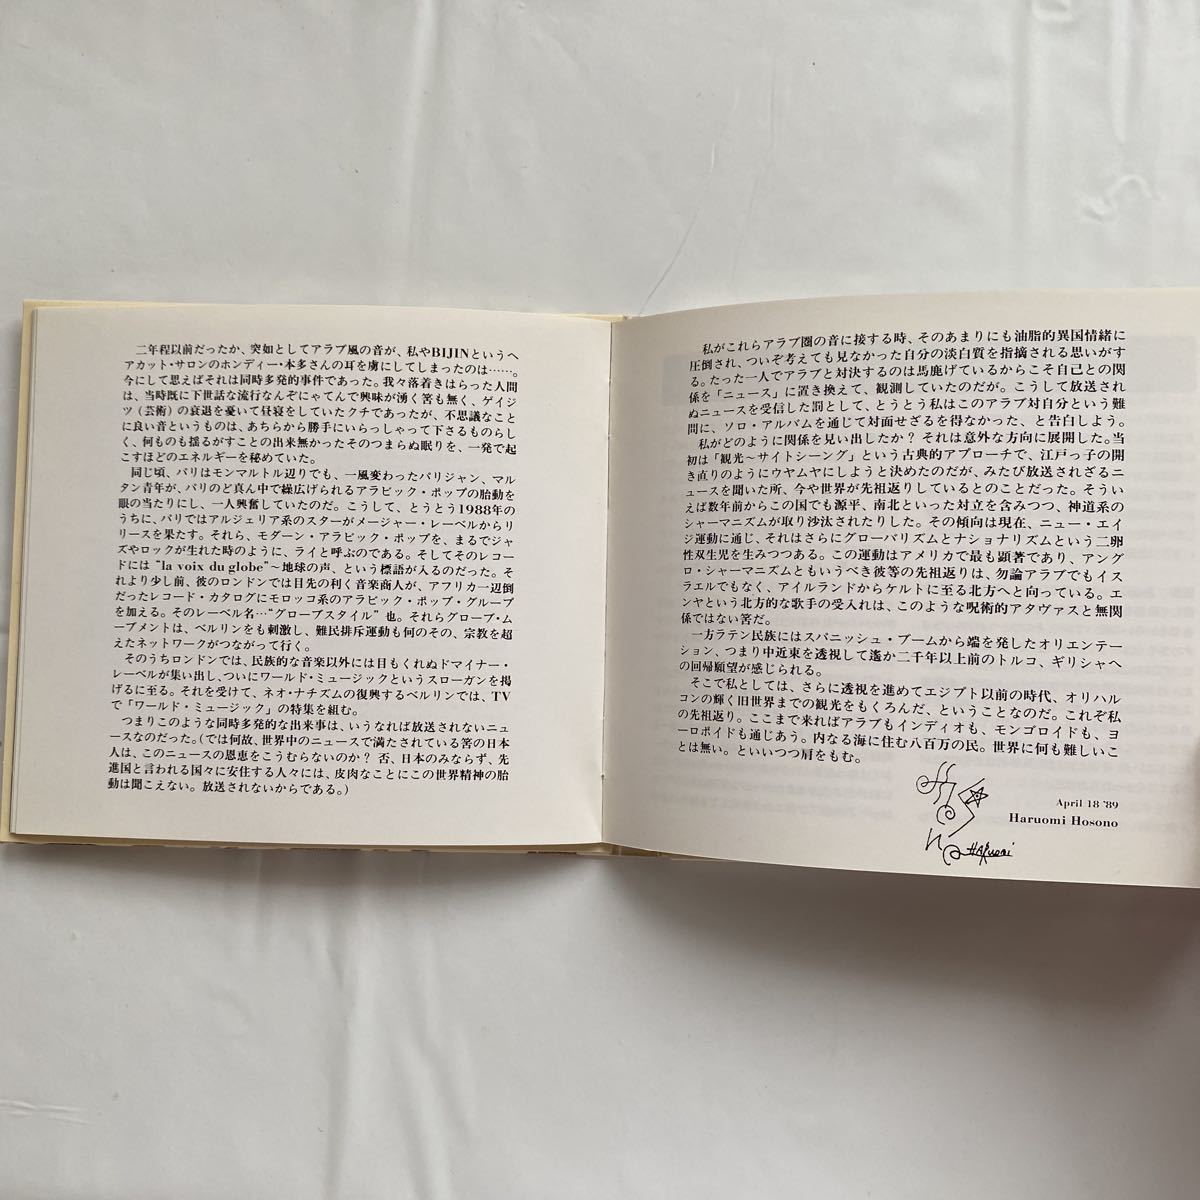 二年程以前だったか、突如としてアラブ風の音が、私やBIJINというヘ
アカット・サロンのホンディー・本多さんの耳を虜にしてしまったのは……。
今にして思えばそれは同時多発的事件であった。我々落着きはらった人間
は、当時既に下世話な流行なんぞにゃてんで興味が湧く筈も無く、ゲイジ
ツ(芸術)の衰退を憂いて昼寝をしていたクチであったが、不思議なこと
に良い音というものは、あちらから勝手にいらっしゃって下さるものらし
く、何ものも揺るがすことの出来無かったそのつまらぬ眠りを、一発で起
こすほどのエネルギーを秘めていた。
同じ頃、パリはモンマルトル辺りでも、一風変わったパリジャン、マル
タン青年が、パリのど真ん中で繰広げられるアラビック・ポップの胎動を
眼の当たりにし、一人興奮していたのだ。こうして、とうとう1988年の
うちに、パリではアルジェリア系のスターがメージャー・レーベルからリ
リースを果たす。それら、モダーン・アラビック・ポップを、まるでジャ
ズやロックが生れた時のように、ライと呼ぶのである。そしてそのレコー
ドには "la voix du globe"～地球の声、という標語が入るのだった。そ
れより少し前、彼のロンドンでは目先の利く音楽商人が、アフリカ一辺倒
だったレコード・カタログにモロッコ系のアラビック・ポップ・グループ
を加える。そのレーベル名…"グローブスタイル" 也。それらグローブ・ム
ーブメントは、ベルリンをも刺激し、難民排斥運動も何のその、宗教を超
えたネットワークがつながって行く。
そのうちロンドンでは、民族的な音楽以外には目もくれぬドマイナー・
レーベルが集い出し、ついにワールド・ミュージックというスローガンを掲
げるに至る。それを受けて、ネオ・ナチズムの復興するベルリンでは、TV
で「ワールド・ミュージック」の特集を組む。
つまりこのような同時多発的な出来事は、いうなれば放送されないニュ
ースなのだった。(では何故、世界中のニュースで満たされている筈の日本
人は、このニュースの恩恵をこうむらないのか？ 否、日本のみならず、先
進国と言われる国々に安住する人々には、皮肉なことにこの世界精神の胎
動は聞こえない。放送されないからである。)
私がこれらアラブ圏の音に接する時、そのあまりにも油脂的異国情緒に
圧倒され、ついぞ考えても見なかった自分の淡白質を指摘される思いがす
る。たった一人でアラブと対決するのは馬鹿げているからこそ自己との関
係を「ニュース」に置き換えて、観測していたのだが。こうして放送され
ぬニュースを受信した罰として、とうとう私はこのアラブ対自分という難
間に、ソロ・アルバムを通じて対面せざるを得なかった、と告白しよう。
私がどのように関係を見い出したか？ それは意外な方向に展開した。当
初は「観光～サイトシーング」という古典的アプローチで、江戸っ子の開
き直りのようにウヤムヤにしようと決めたのだが、みたび放送されざるニ
ュースを聞いた所、今や世界が先祖返りしているとのことだった。そうい
えば数年前からこの国でも源平、南北といった対立を含みつつ、神道系の
シャーマニズムが取り沙汰されたりした。その傾向は現在、ニュー・エイ
ジ運動に通じ、それはさらにグローバリズムとナショナリズムという二卵
性双生児を生みつつある。この運動はアメリカで最も顕著であり、アング
ロ・シャーマニズムともいうべき彼等の先祖返りは、勿論アラブでもイス
ラエルでもなく、アイルランドからケルトに至る北方へと向っている。エ
ンヤという北方的な歌手の受入れは、このような呪術的アタヴァスと無関
係ではない筈だ。
一方ラテン民族にはスパニッシュ・ブームから端を発したオリエンテー
ション、つまり中近東を透視して遙か二千年以上前のトルコ、ギリシャへ
の回帰願望が感じられる。
そこで私としては、さらに透視を進めてエジプト以前の時代、オリハル
コンの輝く旧世界までの観光をもくろんだ、ということなのだ。これぞ私
の先祖返り。ここまで来ればアラブもインディオも、モンゴロイドも、ヨ
ーロポイドも通じあう。内なる海に住む八百万の民。世界に何も難しいこ
とは無い。といいつつ肩をもむ。
April 18 '89
Haruomi Hosono
HARuomi